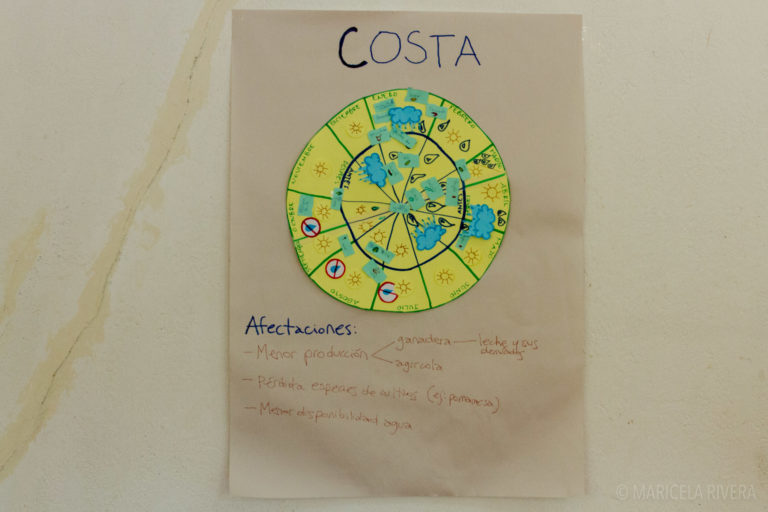 COSTA
ENERO
FEBRERO
MARZO
ABRIL
MAYO
JUNIO
JULIO
AGOSTO
NOVIEMBRE
DICIEMBRE
ANTES
Afectaciones:
- Menor producción
ganadera — leche y sus
derivados
agrícola
- Pérdida especies de cultivos (ej: pomarrosa)
- Menor disponibilidad agua
© MARICELA RIVERA